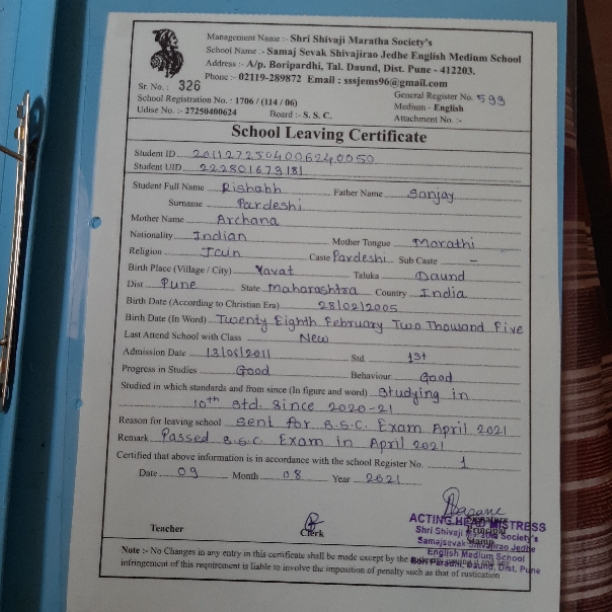 Management Name :- Shri Shivaji Maratha Society's
School Name :- Samaj Sevak Shivajirao Jedhe English Medium School
Address :- A/p. Boripardhi, Tal. Daund, Dist. Pune - 412203.
Phone :- 02119-289872 Email : sssjems96@gmail.com
Sr. No. : 326 General Register No. 599
School Registration No. : 1706 / (114 / 06) Medium - English
Udise No. :- 27250400624 Board :- S. S. C. Attachment No. :-
School Leaving Certificate
Student ID 2011272504006240050
Student UID 222801679181
Student Full Name Rishabh Father Name Sanjay
Surname Pardeshi
Mother Name Archana
Nationality Indian Mother Tongue Marathi
Religion Jain Caste Pardeshi Sub Caste -
Birth Place (Village / City) Yavat Taluka Daund
Dist Pune State Maharashtra Country India
Birth Date (According to Christian Era) 28/02/2005
Birth Date (In Word) Twenty Eighth February Two Thousand Five
Last Attend School with Class New
Admission Date 13/06/2011 Std 1st
Progress in Studies Good Behaviour Good
Studied in which standards and from since (In figure and word) Studying in
10th Std. Since 2020-21
Reason for leaving school Sent for S.S.C. Exam April 2021
Remark Passed S.S.C. Exam in April 2021
Certified that above information is in accordance with the school Register No. 1
Date 09 Month 08 Year 2021
Teacher Clerk Principal
ACTING HEAD MISTRESS
Shri Shivaji Maratha Society's
Samajsevak Shivajirao Jedhe
English Medium School
Bori Pardhi, Daund, Dist. Pune
Note :- No Changes in any entry in this certificate shall be made except by the
infringement of this requirement is liable to involve the imposition of penalty such as that of rustication